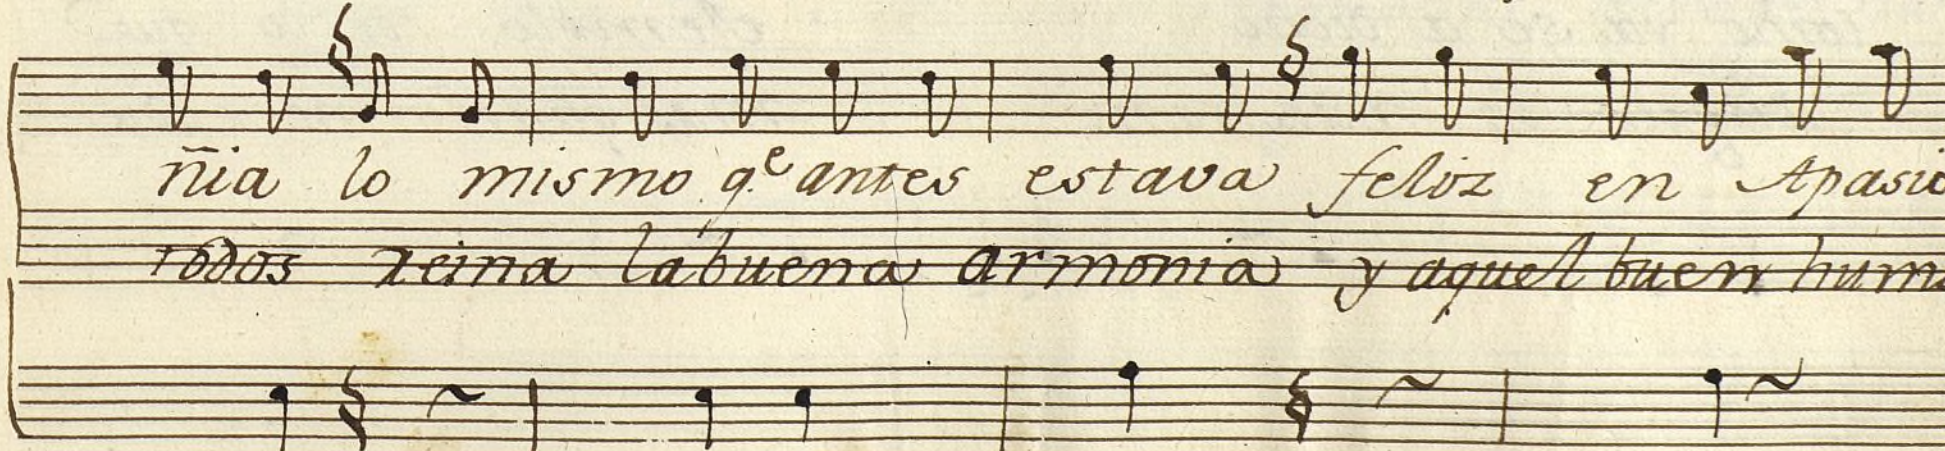 ñia lo mismo q.e antes estava feliz en Apasio
todos reina la buena armonia y aquel buen humo